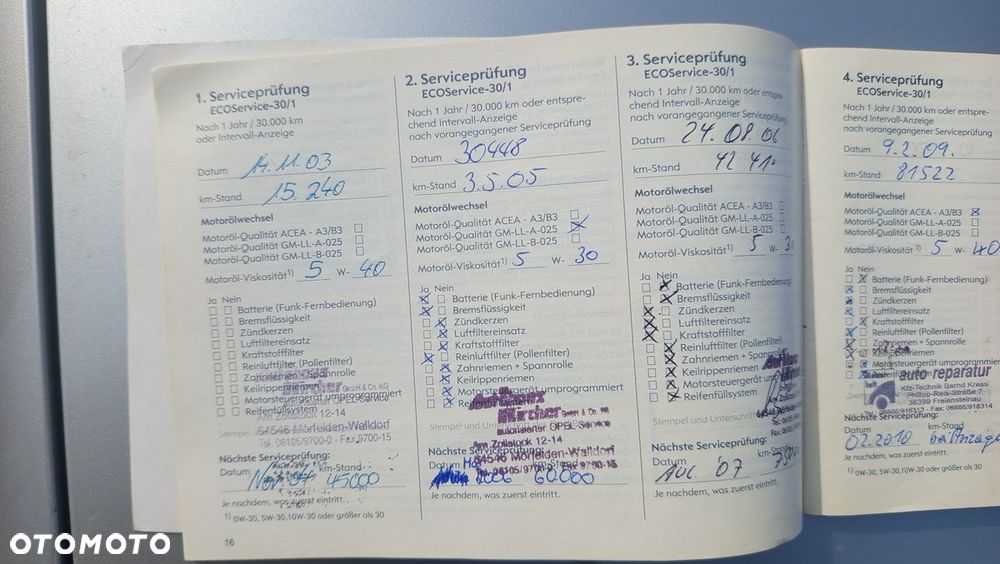 1. Serviceprüfung
ECOService-30/1
Nach 1 Jahr / 30.000 km
oder Intervall-Anzeige
Datum 14.11.03
km-Stand 15.240
Motorölwechsel
Motoröl-Qualität ACEA - A3/B3
Motoröl-Qualität GM-LL-A-025
Motoröl-Qualität GM-LL-B-025
Motoröl-Viskosität1) 5 W- 40
Ja Nein
Batterie (Funk-Fernbedienung)
Bremsflüssigkeit
Zündkerzen
Luftfiltereinsatz
Kraftstofffilter
Reinluftfilter (Pollenfilter)
Zahnriemen + Spannrolle
Keilrippenriemen
Motorsteuergerät umprogrammiert
Reifenfüllsystem
GmbH & Co. KG
autorisierter OPEL-Service
Am Zollstock 12-14
Stempel
64546 Mörfelden-Walldorf
Tel. 06105/9700-0 · Fax 9700-15
Nächste Serviceprüfung:
Datum km-Stand
45000
Je nachdem, was zuerst eintritt.
1) 0W-30, 5W-30,10W-30 oder größer als 30
16
2. Serviceprüfung
ECOService-30/1
Nach 1 Jahr / 30.000 km oder entspre-
chend Intervall-Anzeige
nach vorangegangener Serviceprüfung
Datum 30448
km-Stand 3.5.05
Motorölwechsel
Motoröl-Qualität ACEA - A3/B3
Motoröl-Qualität GM-LL-A-025
Motoröl-Qualität GM-LL-B-025
Motoröl-Viskosität1) 5 W- 30
Ja Nein
Batterie (Funk-Fernbedienung)
Bremsflüssigkeit
Zündkerzen
Luftfiltereinsatz
Kraftstofffilter
Reinluftfilter (Pollenfilter)
Zahnriemen + Spannrolle
Keilrippenriemen
Motorsteuergerät umprogrammiert
Reifenfüllsystem
GmbH & Co. KG
autorisierter OPEL-Service
Stempel
Am Zollstock 12-14
64546 Mörfelden-Walldorf
Nächste Serviceprüfung:
Tel. 06105/9700-0 · Fax 9700-15
Datum km-Stand
2006 60.000
Je nachdem, was zuerst eintritt.
3. Serviceprüfung
ECOService-30/1
Nach 1 Jahr / 30.000 km oder entspre-
chend Intervall-Anzeige
nach vorangegangener Serviceprüfung
Datum 24.08.06
km-Stand
Motorölwechsel
Motoröl-Qualität ACEA - A3/B3
Motoröl-Qualität GM-LL-A-025
Motoröl-Qualität GM-LL-B-025
Motoröl-Viskosität1) 5 W-
Ja Nein
Batterie (Funk-Fernbedienung)
Bremsflüssigkeit
Zündkerzen
Luftfiltereinsatz
Kraftstofffilter
Reinluftfilter (Pollenfilter)
Zahnriemen + Spannrolle
Keilrippenriemen
Motorsteuergerät
Reifenfüllsystem
Stempel und Unterschrift
Nächste Serviceprüfung:
Datum km-Stand
07
Je nachdem, was zuerst eintritt.
4. Serviceprüfung
ECOService-30/1
Nach 1 Jahr / 30.000 km oder entspre-
chend Intervall-Anzeige
nach vorangegangener Serviceprüfung
Datum 9.2.09.
km-Stand 81522
Motorölwechsel
Motoröl-Qualität ACEA - A3/B3
Motoröl-Qualität GM-LL-A-025
Motoröl-Qualität GM-LL-B-025
Motoröl-Viskosität1) 5 W- 40
Ja Nein
Batterie (Funk-Fernbedienung)
Bremsflüssigkeit
Zündkerzen
Luftfiltereinsatz
Kraftstofffilter
Reinluftfilter (Pollenfilter)
Zahnriemen + Spannrolle
Keilrippenriemen
Motorsteuergerät umprogrammiert
auto reparatur
Kfz-Technik Bernd Kress
Philipp-Reis-Straße 7
36399 Freiensteinau
Tel. 06666/918313 · Fax: 06666/918314
Nächste Serviceprüfung:
Datum km-Stand
02.2010
Je nachdem, was zuerst eintritt.
1) 0W-30, 5W-30,10W-30 oder größer als 30
OTOMOTO